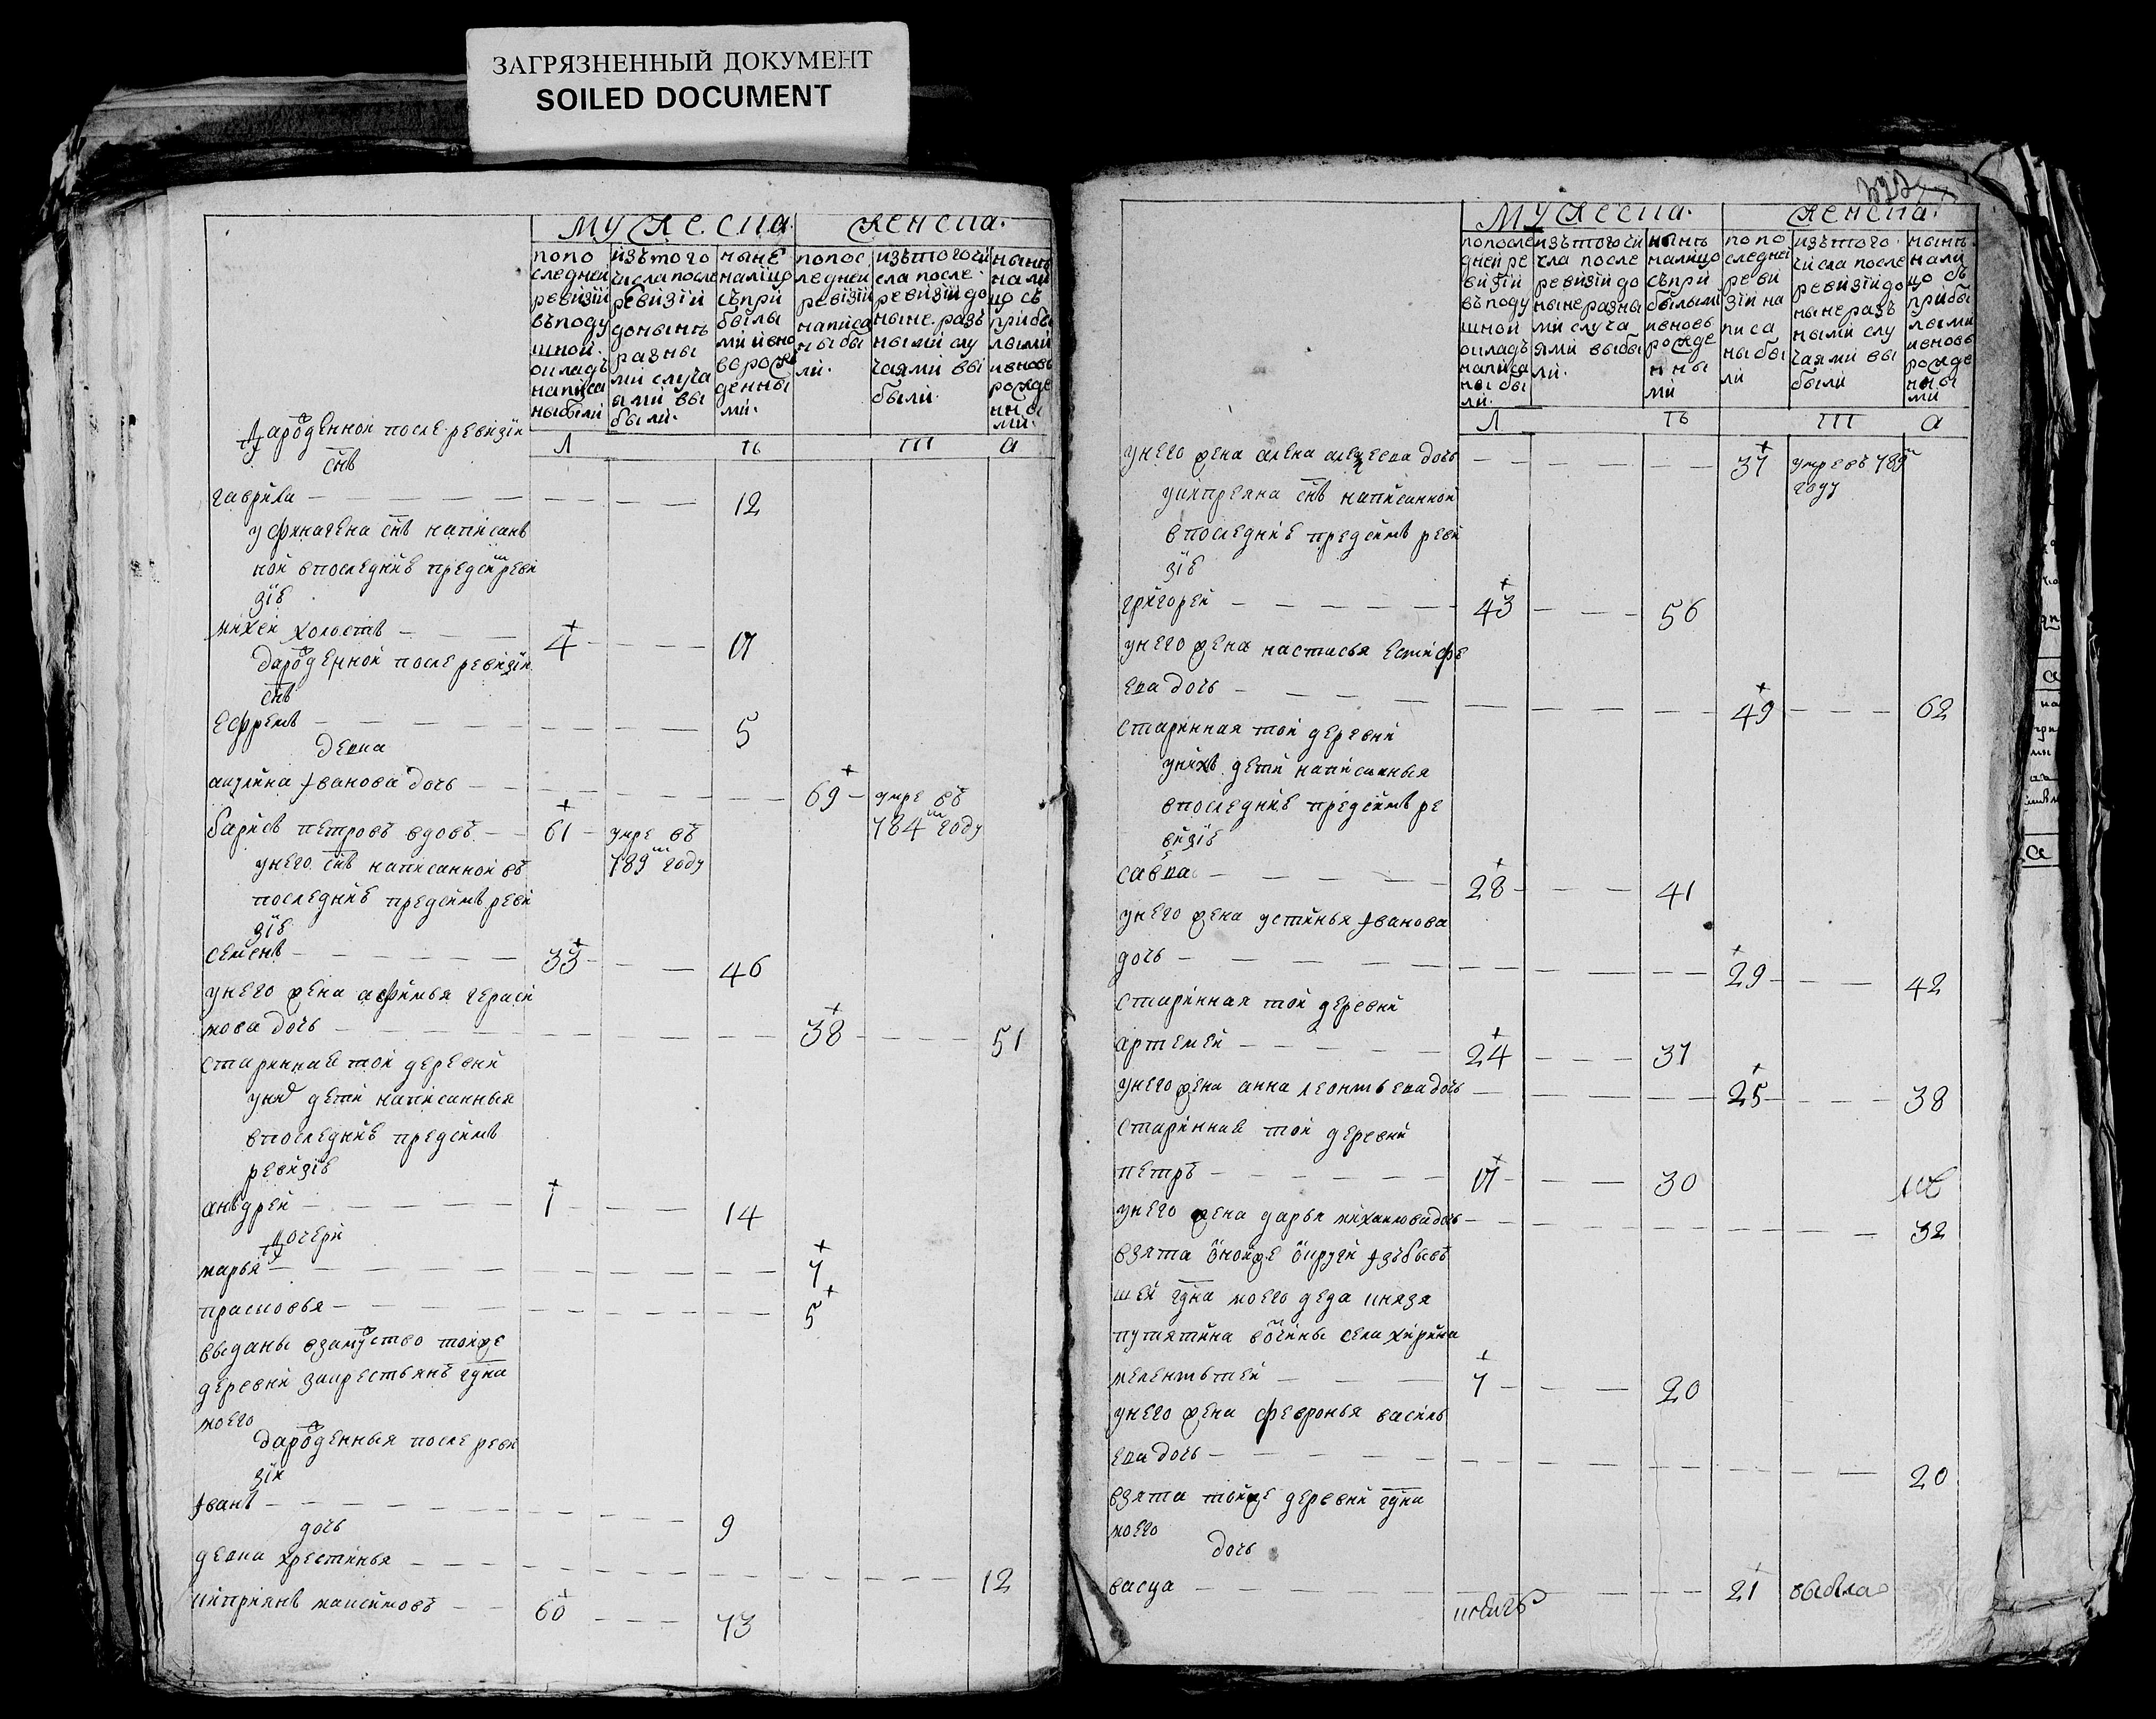 ЗАГРЯЗНЕННЫЙ ДОКУМЕНТ
SOILED DOCUMENT
мужеска. женска.
попо следней ревизии въподу шной. окладъ написа ныбыли
изътого числа после ревизии доныне разны ми случа ями вы были.
ныне налицо съпри былы ми ивно ворож денны ми.
попос ледней ревизии написа ны бы ли.
изътогочи сла после ревизии до ныне. разъ ными слу чаями вы были.
ныне нали цо съ прибы лыми ивновь рожде нны ми.
л ть т а
дарожденной после ревизии
снъ
гаврила 12
у финагена снъ написанъ
ной впоследней предсим реви
зiе
михей холостъ 4 17
дарожденной после ревизии
снъ
ефремъ 5
девка
акулина иванова дочь 69 умре въ
784м году
барисъ петровъ вдовъ 61 умре въ
789м году
унего снъ написанной въ
последней предсимъ реви
зiе
семенъ 33 46
унего жена афимья гераси
мова дочь 38 51
стариннае той деревни
уних дети написанныя
впоследней предсимъ
ревизiе
анъдрей 1 14
дочери
марья 7
прасковья 5
выданы взамужство тойже
деревни закрестьянъ гдна
моего
дарожденныя после реви
зiи
иванъ 9
дочь
девка христинья 12
киприянъ максимовъ 60 73
мужеска. женска.
попосле дней ре визiи въподу шной окладъ написа ны бы ли.
изътогочи сла после ревизiи до ныне разны ми случа ями выбы ли.
ныне налицо съпри былыми ивновь рожде нны ми
попо следней реви зiи на писа ны бы ли
изътого числа после ревизiи до ныне разъ ными слу чаями вы были
ныне нали цо съ прибы лыми ивновь рожде нны ми
л ть т а
унего жена алена алексеева дочь 37 умре въ 789м
году
укипреяна снъ написанной
впоследней предсимъ реви
зiе
григорей 43 56
унего жена настасья естифе
ева дочь 49 62
старинная той деревни
унихъ дети написанныя
впоследней предсимъ ре
визiе
савва 28 41
унего жена устинья иванова
дочь 29 42
старинная той деревни
артемей 24 37
унего жена анна леонтьевадочь 25 38
стариннае той деревни
петръ 17 30
унего жена дарья михаиловадочь 32
взята оной же округи изъбывъ
шей гдна моего деда князя
путятина вочины села хирина
мелентьтей 7 20
унего жена февронья василь
ева дочь 20
взята тойже деревни гдна
моего
дочь
васса 21 выбыла